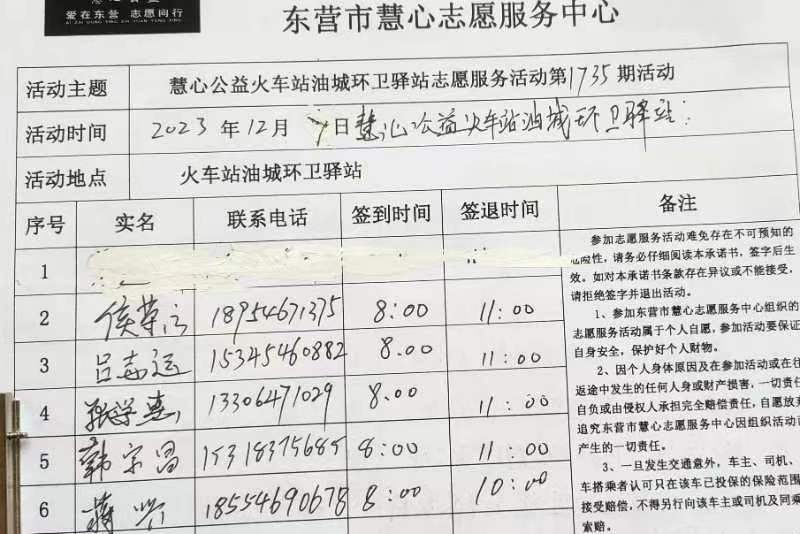 爱在东营 志愿同行
东营市慧心志愿服务中心
活动主题 慧心公益火车站油城环卫驿站志愿服务活动第1735期活动
活动时间 2023年12月 日慧心公益火车站油城环卫驿站
活动地点 火车站油城环卫驿站
序号 实名 联系电话 签到时间 签退时间 备注
1
2 侯荣 18954671375 8:00 11:00
3 吕志远 15345460882 8.00 11:00
4 张学 13306471029 8.00 11:00
5 韩宗昌 15318375685 8:00 11:00
6 蒋 18554690678 8:00 10:00
参加志愿服务活动难免存在不可预知的
危险性，请务必仔细阅读本承诺书，签字后生
效。如对本承诺书条款存在异议或不能接受，
请拒绝签字并退出活动。
1、参加东营市慧心志愿服务中心组织的
志愿服务活动属于个人自愿，参加活动要保证
自身安全，保护好个人财物。
2、因个人身体原因及在参加活动或在往
返途中发生的任何人身或财产损害，一切责任
自负或由侵权人承担完全赔偿责任，自愿放弃
追究东营市慧心志愿服务中心因组织活动而
产生的一切责任。
3、一旦发生交通意外，车主、司机、
车搭乘者认可只在该车已投保的保险范围
接受赔偿，不得另行向该车主或司机及同乘
索赔。